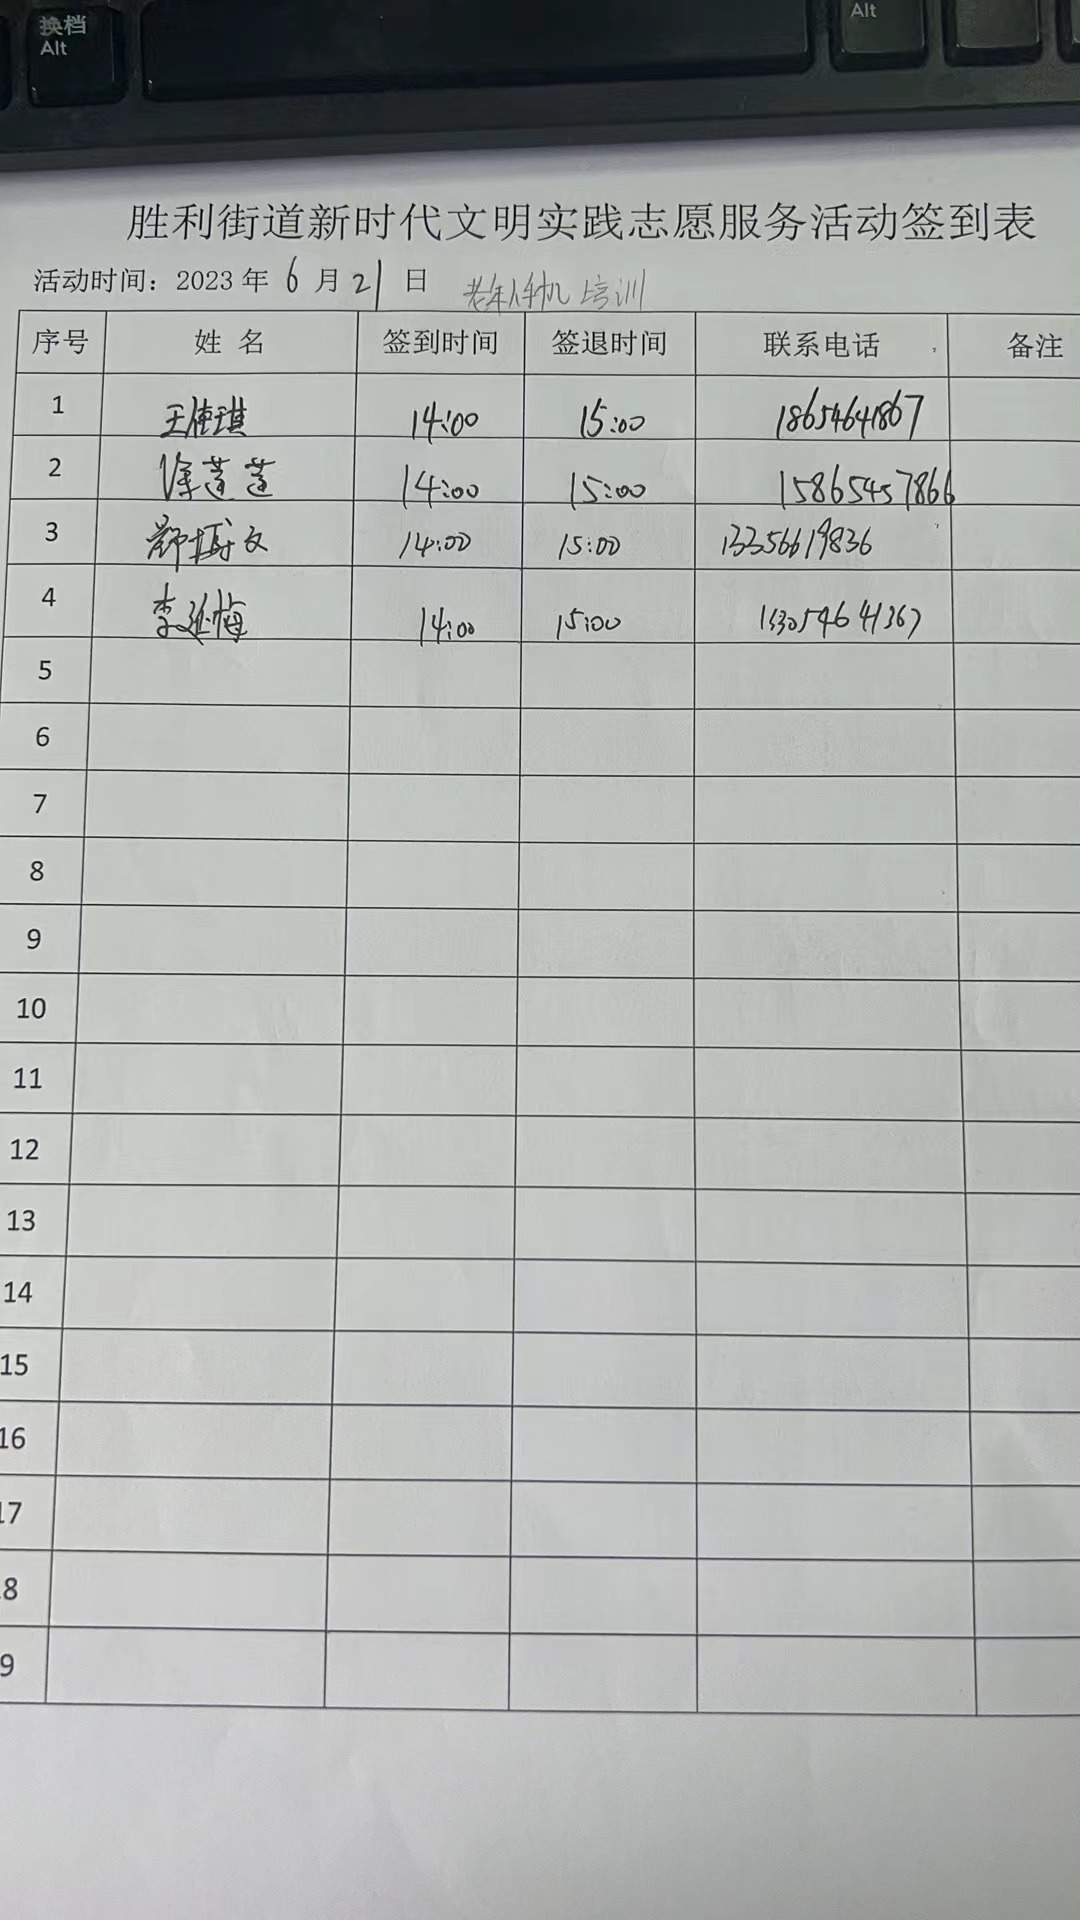 换档
Alt
Alt
胜利街道新时代文明实践志愿服务活动签到表
活动时间：2023 年 6 月 21 日 老年人手机培训
序号 姓 名 签到时间 签退时间 联系电话 备注
1 王倩琪 14:00 15:00 18654641867
2 徐莲莲 14:00 15:00 15865457866
3 郭博文 14:00 15:00 13356619836
4 李延梅 14:00 15:00 133054641367
5
6
7
8
9
10
11
12
13
14
15
16
17
8
9